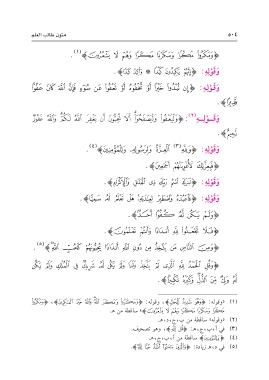 ٥٠٤ متون طالب العلم
﴿وَمَكَرُوا مَكْرًا وَمَكَرْنَا مَكْرًا وَهُمْ لَا يَشْعُرُونَ﴾(١).
وَقَوْلِهِ: ﴿إِنَّهُمْ يَكِيدُونَ كَيْدًا * وَأَكِيدُ كَيْدًا﴾.
وَقَوْلِهِ: ﴿إِن تُبْدُوا خَيْرًا أَوْ تُخْفُوهُ أَوْ تَعْفُوا عَن سُوءٍ فَإِنَّ اللَّهَ كَانَ عَفُوًّا
قَدِيرًا﴾.
وَقَوْلِهِ(٢): ﴿وَلْيَعْفُوا وَلْيَصْفَحُوا أَلَا تُحِبُّونَ أَن يَغْفِرَ اللَّهُ لَكُمْ وَاللَّهُ غَفُورٌ
رَّحِيمٌ﴾.
وَقَوْلِهِ: ﴿وَلِلَّهِ(٣) الْعِزَّةُ وَلِرَسُولِهِ وَلِلْمُؤْمِنِينَ﴾(٤).
﴿فَبِعِزَّتِكَ لَأُغْوِيَنَّهُمْ أَجْمَعِينَ﴾.
وَقَوْلِهِ: ﴿تَبَارَكَ اسْمُ رَبِّكَ ذِي الْجَلَالِ وَالْإِكْرَامِ﴾.
وَقَوْلِهِ: ﴿فَاعْبُدْهُ وَاصْطَبِرْ لِعِبَادَتِهِ هَلْ تَعْلَمُ لَهُ سَمِيًّا﴾.
﴿وَلَمْ يَكُن لَّهُ كُفُوًا أَحَدٌ﴾.
﴿فَلَا تَجْعَلُوا لِلَّهِ أَندَادًا وَأَنتُمْ تَعْلَمُونَ﴾.
﴿وَمِنَ النَّاسِ مَن يَتَّخِذُ مِن دُونِ اللَّهِ أَندَادًا يُحِبُّونَهُمْ كَحُبِّ اللَّهِ﴾(٥).
﴿وَقُلِ الْحَمْدُ لِلَّهِ الَّذِي لَمْ يَتَّخِذْ وَلَدًا وَلَمْ يَكُن لَّهُ شَرِيكٌ فِي الْمُلْكِ وَلَمْ يَكُن
لَّهُ وَلِيٌّ مِّنَ الذُّلِّ وَكَبِّرْهُ تَكْبِيرًا﴾.
(١) «وقوله: ﴿وَهُوَ شَدِيدُ الْمِحَالِ﴾، وقوله: ﴿وَمَكَرُوا وَمَكَرَ اللَّهُ وَاللَّهُ خَيْرُ الْمَاكِرِينَ﴾، ﴿وَمَكَرُوا
مَكْرًا وَمَكَرْنَا مَكْرًا وَهُمْ لَا يَشْعُرُونَ﴾» ساقطة من
(٢) «وقوله» ساقطة من
(٣) في
(٤) ﴿وَلِلْمُؤْمِنِينَ﴾ ساقطة من
(٥) في زيادة: ﴿وَالَّذِينَ آمَنُوا أَشَدُّ حُبًّا لِّلَّهِ﴾.